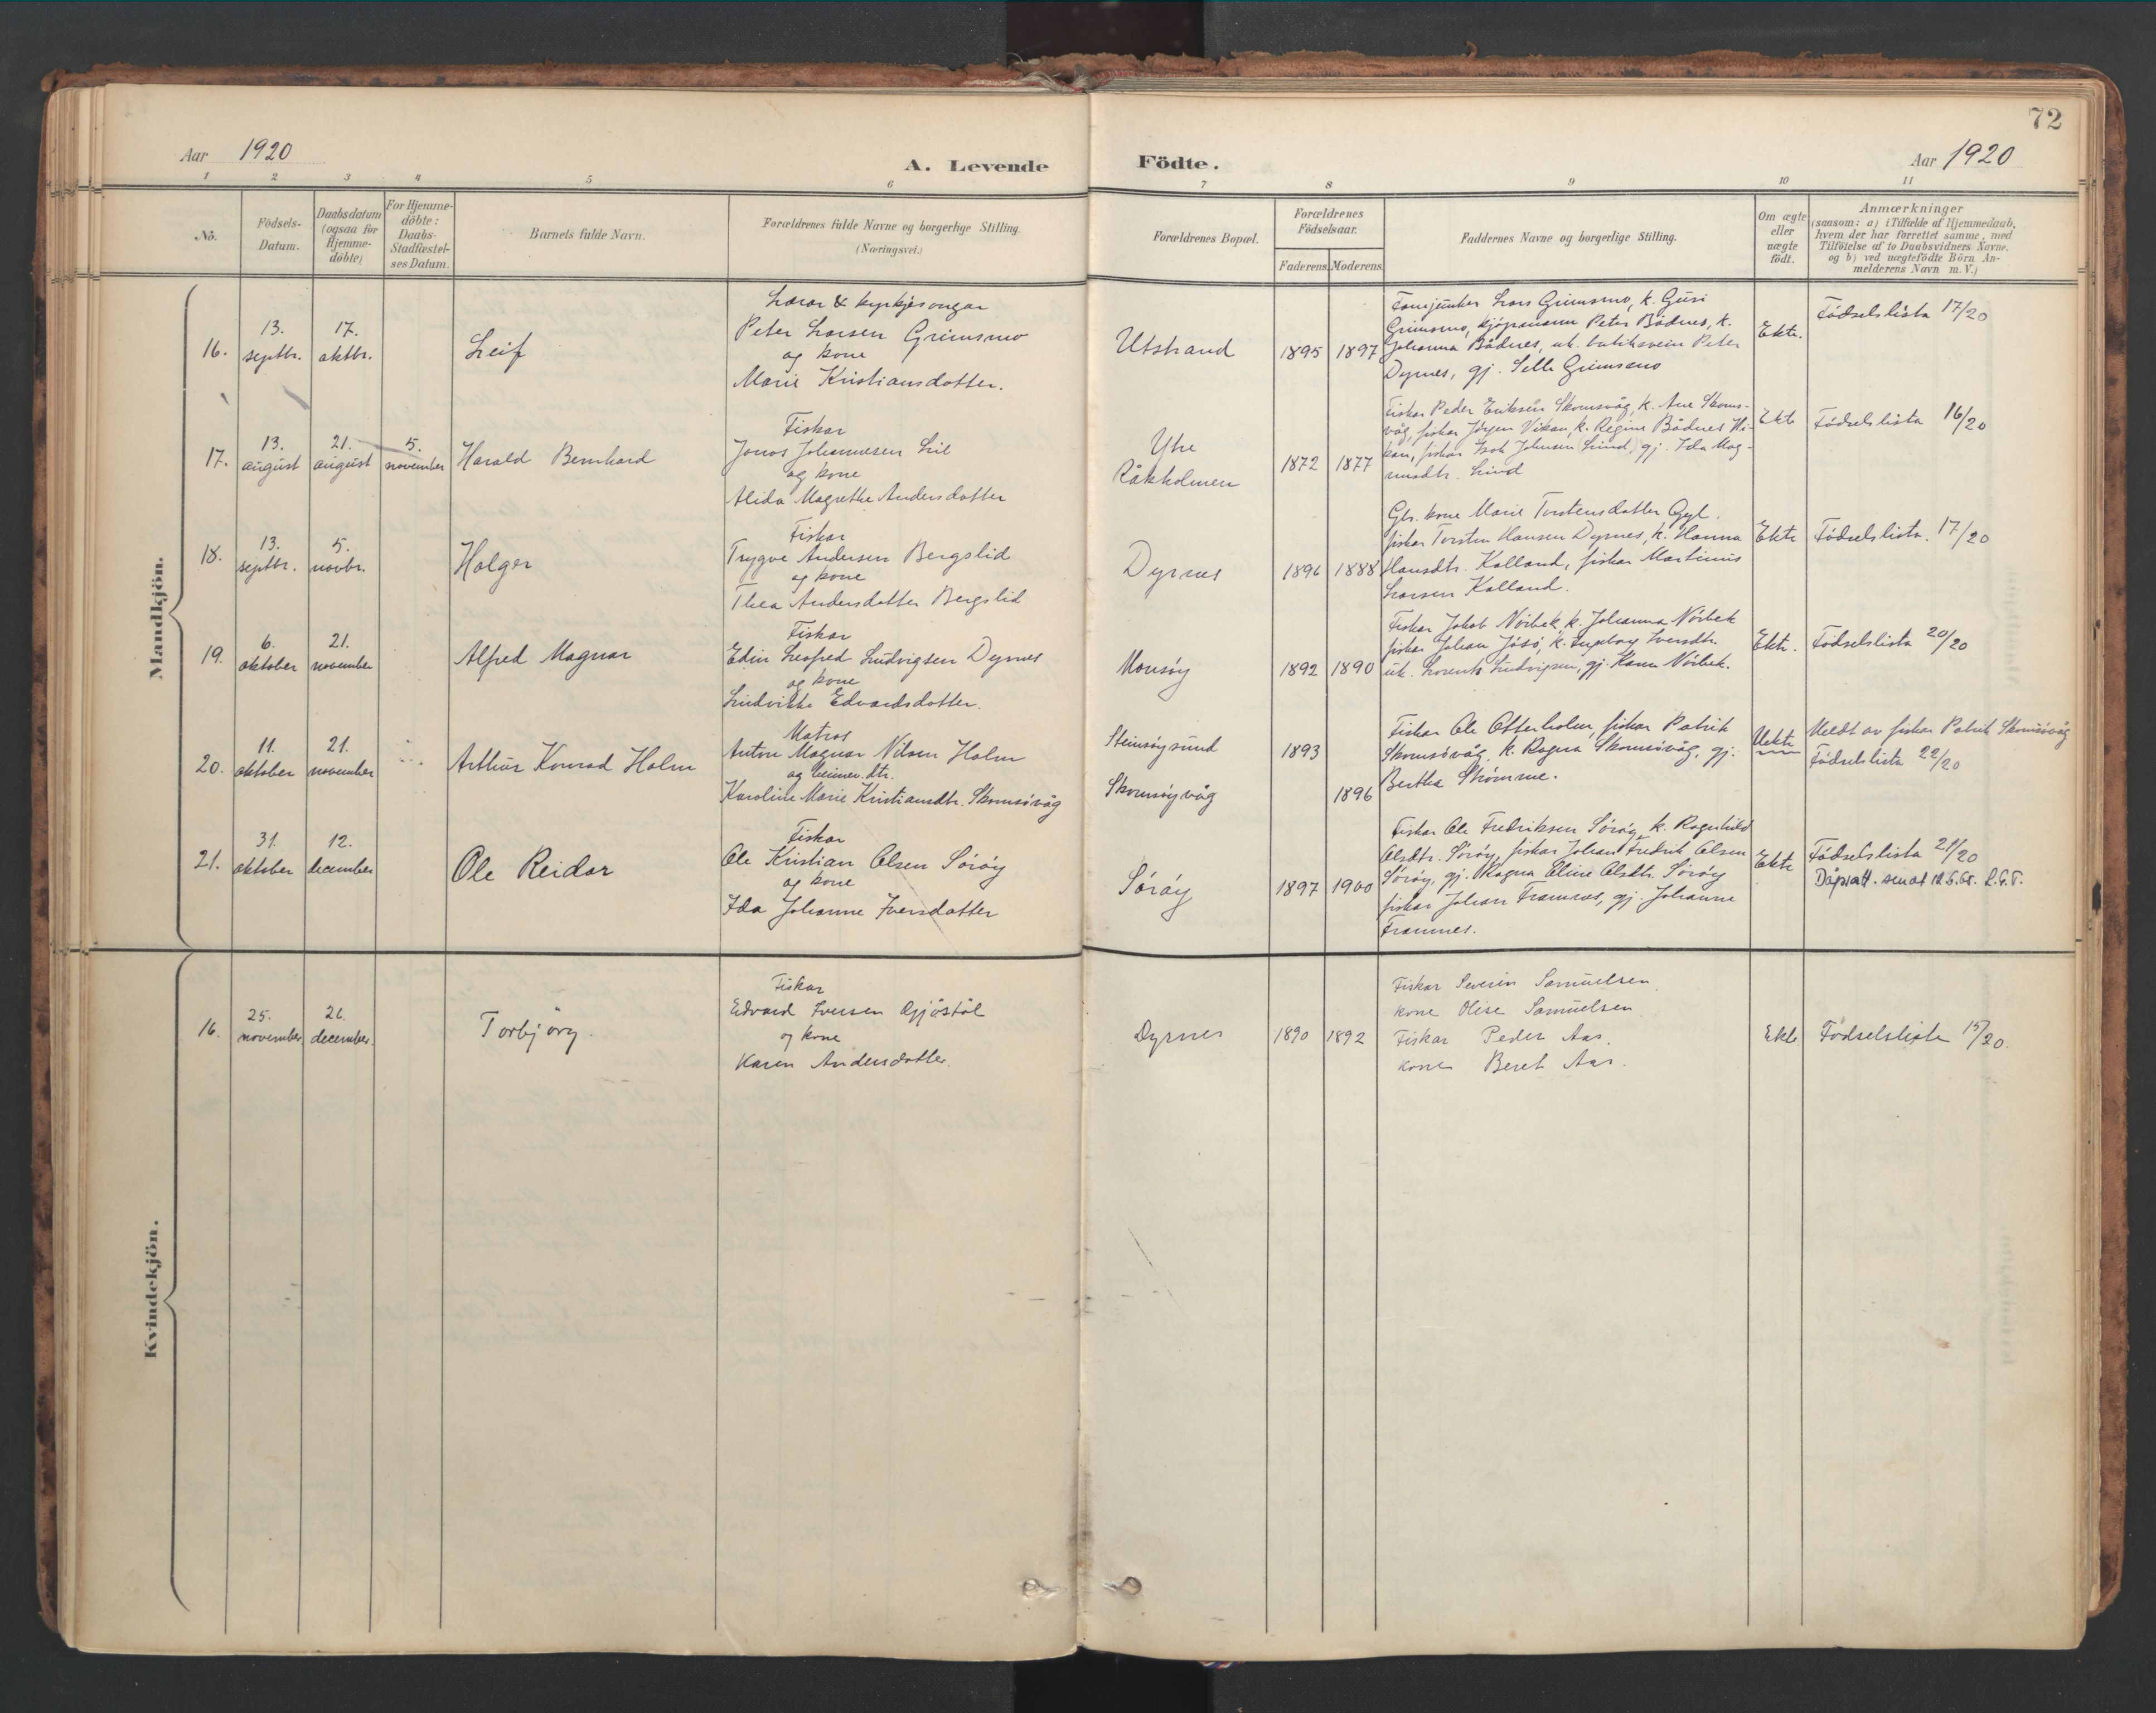 72
Aar 1920
A. Levende Födte.
Aar 1920
1 2 3 4 5 6 7 8 9 10 11
No.
Födsels-
Datum.
Daabsdatum
(ogsaa for
Hjemme-
döbte)
For Hjemme-
döbte:
Daabs-
Stadfæstel-
ses Datum.
Barnets fulde Navn.
Forældrenes fulde Navne og borgerlige Stilling.
(Næringsvei.)
Forældrenes Bopæl.
Forældrenes
Födselsaar.
Faderens. Moderens.
Faddernes Navne og borgerlige Stilling.
Om ægte
eller
uægte
födt.
Anmærkninger
(saasom: a) i Tilfælde af Hjemmedaab,
hvem der har forrettet samme, med
Tilföielse af to Daabsvidners Navne,
og b) ved uægtefödte Börn An-
melderens Navn m. V.)
Mandkjön.
16.
13.
septbr.
17.
oktbr.
Leif
Lærar & kyrkjesongar
Peter Larsen Grimsmo
og kone
Marie Kristiansdotter.
Utstrand
1895 1897
Lars Grimsmo, k. Guri
Grimsmo, kjöpmann Peter Bådnes, k.
Johanna Bådnes, uk. butiksvein Peter
Dyrnes, gj. Grimsmo
Ekte.
Födselslista 17/20
17.
13.
august
21.
august
5.
november
Harald Bernhard
Fiskar
Jonas Johannesen Lie
og kone
Alida Magrethe Andersdotter
Ytre
Råkholmen
1872 1877
Fiskar Peder Eriksen Skomsvåg, k. Ane Skoms-
våg, fiskar Jörgen Vikan, k. Regine Bådnes Vi-
kan, fiskar Johnsen Lund, gj. Ida Mag-
nusdtr. Lund
Ekte
Födselslista 16/20
18.
13.
septbr.
5.
novbr.
Holger
Fiskar
Trygve Andersen Bergslid
og kone
Thea Andersdotter Bergslid
Dyrnes
1896 1888
kone Marie Torstensdatter Gyl.
fiskar Torsten Hansen Dyrnes, k. Hanna
Hansdtr. Kalland, fiskar Martinus
Larsen Kalland.
Ekte
Födselslista. 17/20
19.
6.
oktober
21.
november
Alfred Magnar
Fiskar
Edin Leofred Ludvigsen Dyrnes
og kone
Ludvikke Edvardsdotter.
Monsöy
1892 1890
Fiskar Jakob Nörbek, k. Johanna Nörbek
fiskar Johan Jösö, k. Ingeborg Iversdtr.
uk. Lorents Ludvigsen, gj. Nörbek.
Ekte.
Födselslista 20/20
20.
11.
oktober
21.
november
Arthur Konrad Holm
Matros
Anton Magnar Nilsen Holm
og heimev. dtr.
Karoline Marie Kristiansdtr. Skomsövåg
Steinsöysund
Skomsöyvåg
1893
1896
Fiskar Ole Otterholm, fiskar Patrik
Skomsövåg, k. Ragna Skomsövåg, gj.
Bertha Strömme.
Uekte
Meldt av fiskar Patrik Skomsövåg
Födselslista 22/20
21.
31.
oktober
12.
december
Ole Reidar
Fiskar
Ole Kristian Olsen Söröy
og kone
Ida Johanne Iversdatter
Söröy
1897 1900
Fiskar Ole Fredriksen Söröy, k. Ragnhild
Olsdtr. Söröy, fiskar Johan Fredrik Olsen
Söröy, gj. Ragna Eline Olsdtr. Söröy
fiskar Johan Framnes, gj. Johanne
Framnes.
Ekte
Födselslista 21/20
Dåpsatt. sendt 12.6.68.
Kvindekjön.
16.
25.
november
26.
december.
Torbjörg.
Fiskar
Edvard Iversen Gjöstöl
og kone
Karen Andersdotter.
Dyrnes
1890 1892
Fiskar Severin Samuelsen.
kone Olise Samuelsen
Fiskar Peder Aas.
kone Beret Aas.
Ekte
Fødselsliste 15/20.